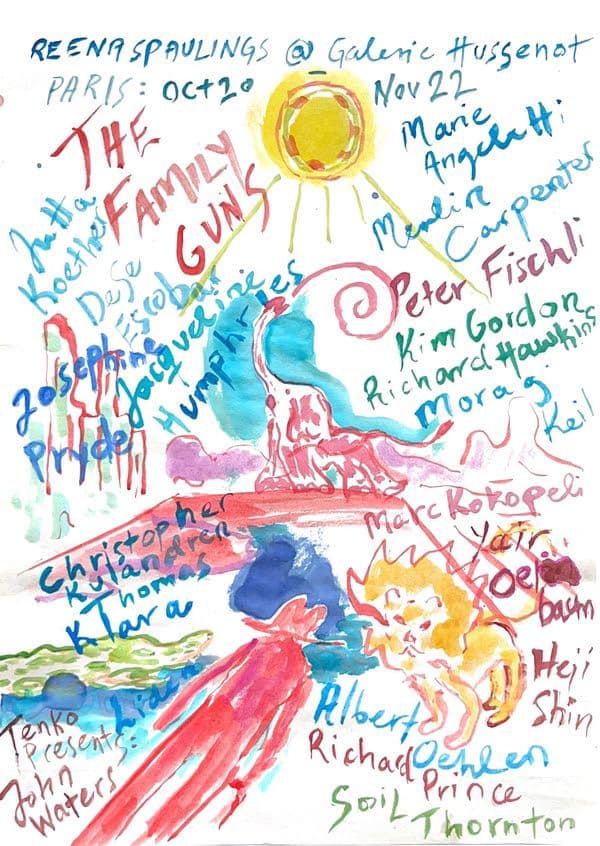 REENA SPAULINGS @ Galerie Hussenot
PARIS: OCT 20 Nov 22
THE
FAMILY
GUNS
Marie
Angeletti
Merlin
Carpenter
Jutta
Koether
Dese
Escobar
Jacqueline
Humphries
Peter Fischli
Kim Gordon
Richard Hawkins
Morag
Keil
Josephine
Pryde
Marc Kokopeli
Christopher
Kulandren
Thomas
Klara
Liden
Yair
Heji
Shin
Tenko
Presents:
John
Waters
Albert
Oehlen
Richard
Prince
Soil
Thornton